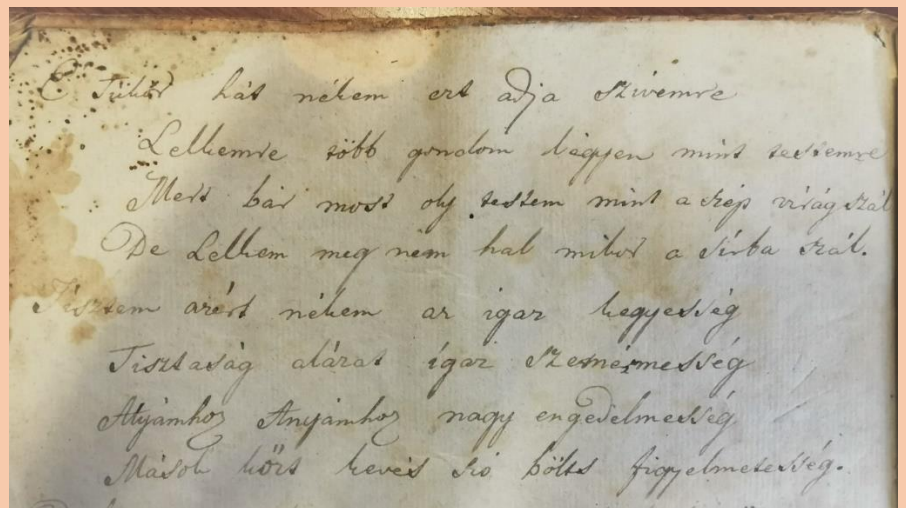 E Tükör hát nékem ezt adja szívemre
Lelkemre több gondom légyen mint testemre
Mert bár most oly testem mint a szép virág szál
De Lelkem meg nem hal mikor a sírba szál.
Tésztem azért nékem az igaz kegyesség
Tisztaság alázat igaz szemérmesség
Atyámhoz Anyámhoz nagy engedelmesség
Mások közt kevés szó bölts figyelmetesség.